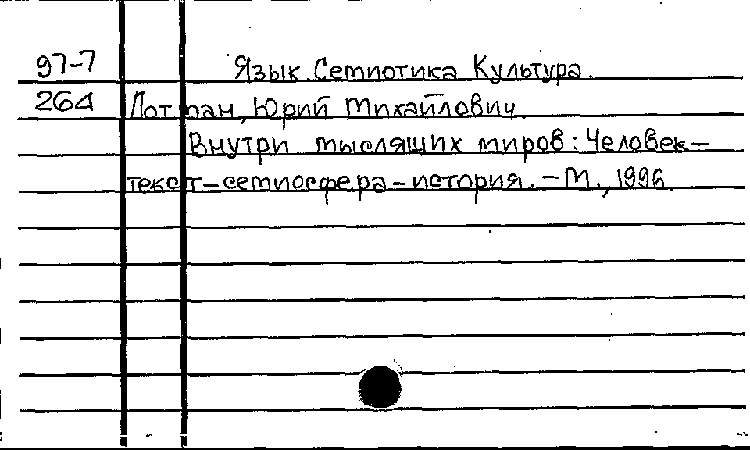 97-7 Язык. Семиотика Культура.
264 Лотман, Юрий Михайлович.
Внутри мыслящих миров: Человек-
текст-семиосфера-история. - М., 1996.